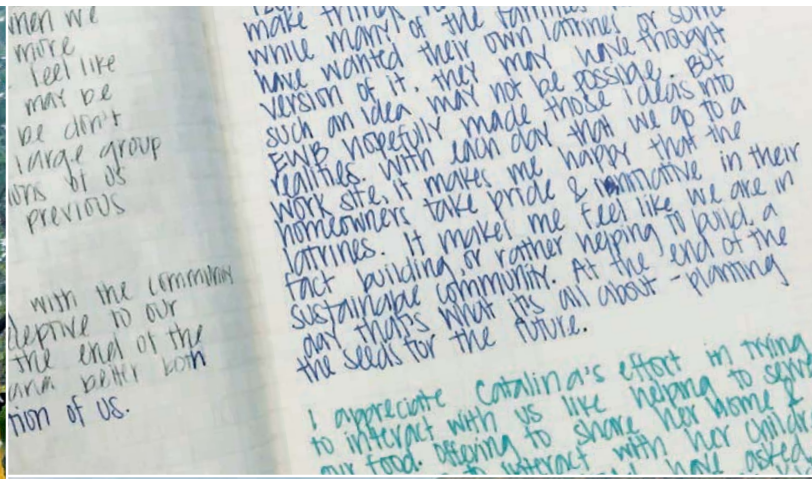 when we
more
feel like
may be
be don't
large group
of us
previous
with the community
to our
the end of the
better both
tion of us.
make things
while many of the families
have wanted their own latrines or some
version of it, they may have thought
such an idea may not be possible. But
EWB hopefully made those ideas into
realities. With each day that we go to a
work site, it makes me happy that the
homeowners take pride & initiative in their
latrines. It makes me feel like we are in
fact building, or rather helping to build, a
sustainable community. At the end of the
day that's what it's all about - planting
the seeds for the future.
I appreciate Catalina's effort in trying
to interact with us like helping to serve
our food. Offering to share her home &
to interact with her childr
have asked